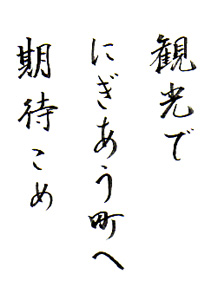 観光で
にぎあう町へ
期待こめ